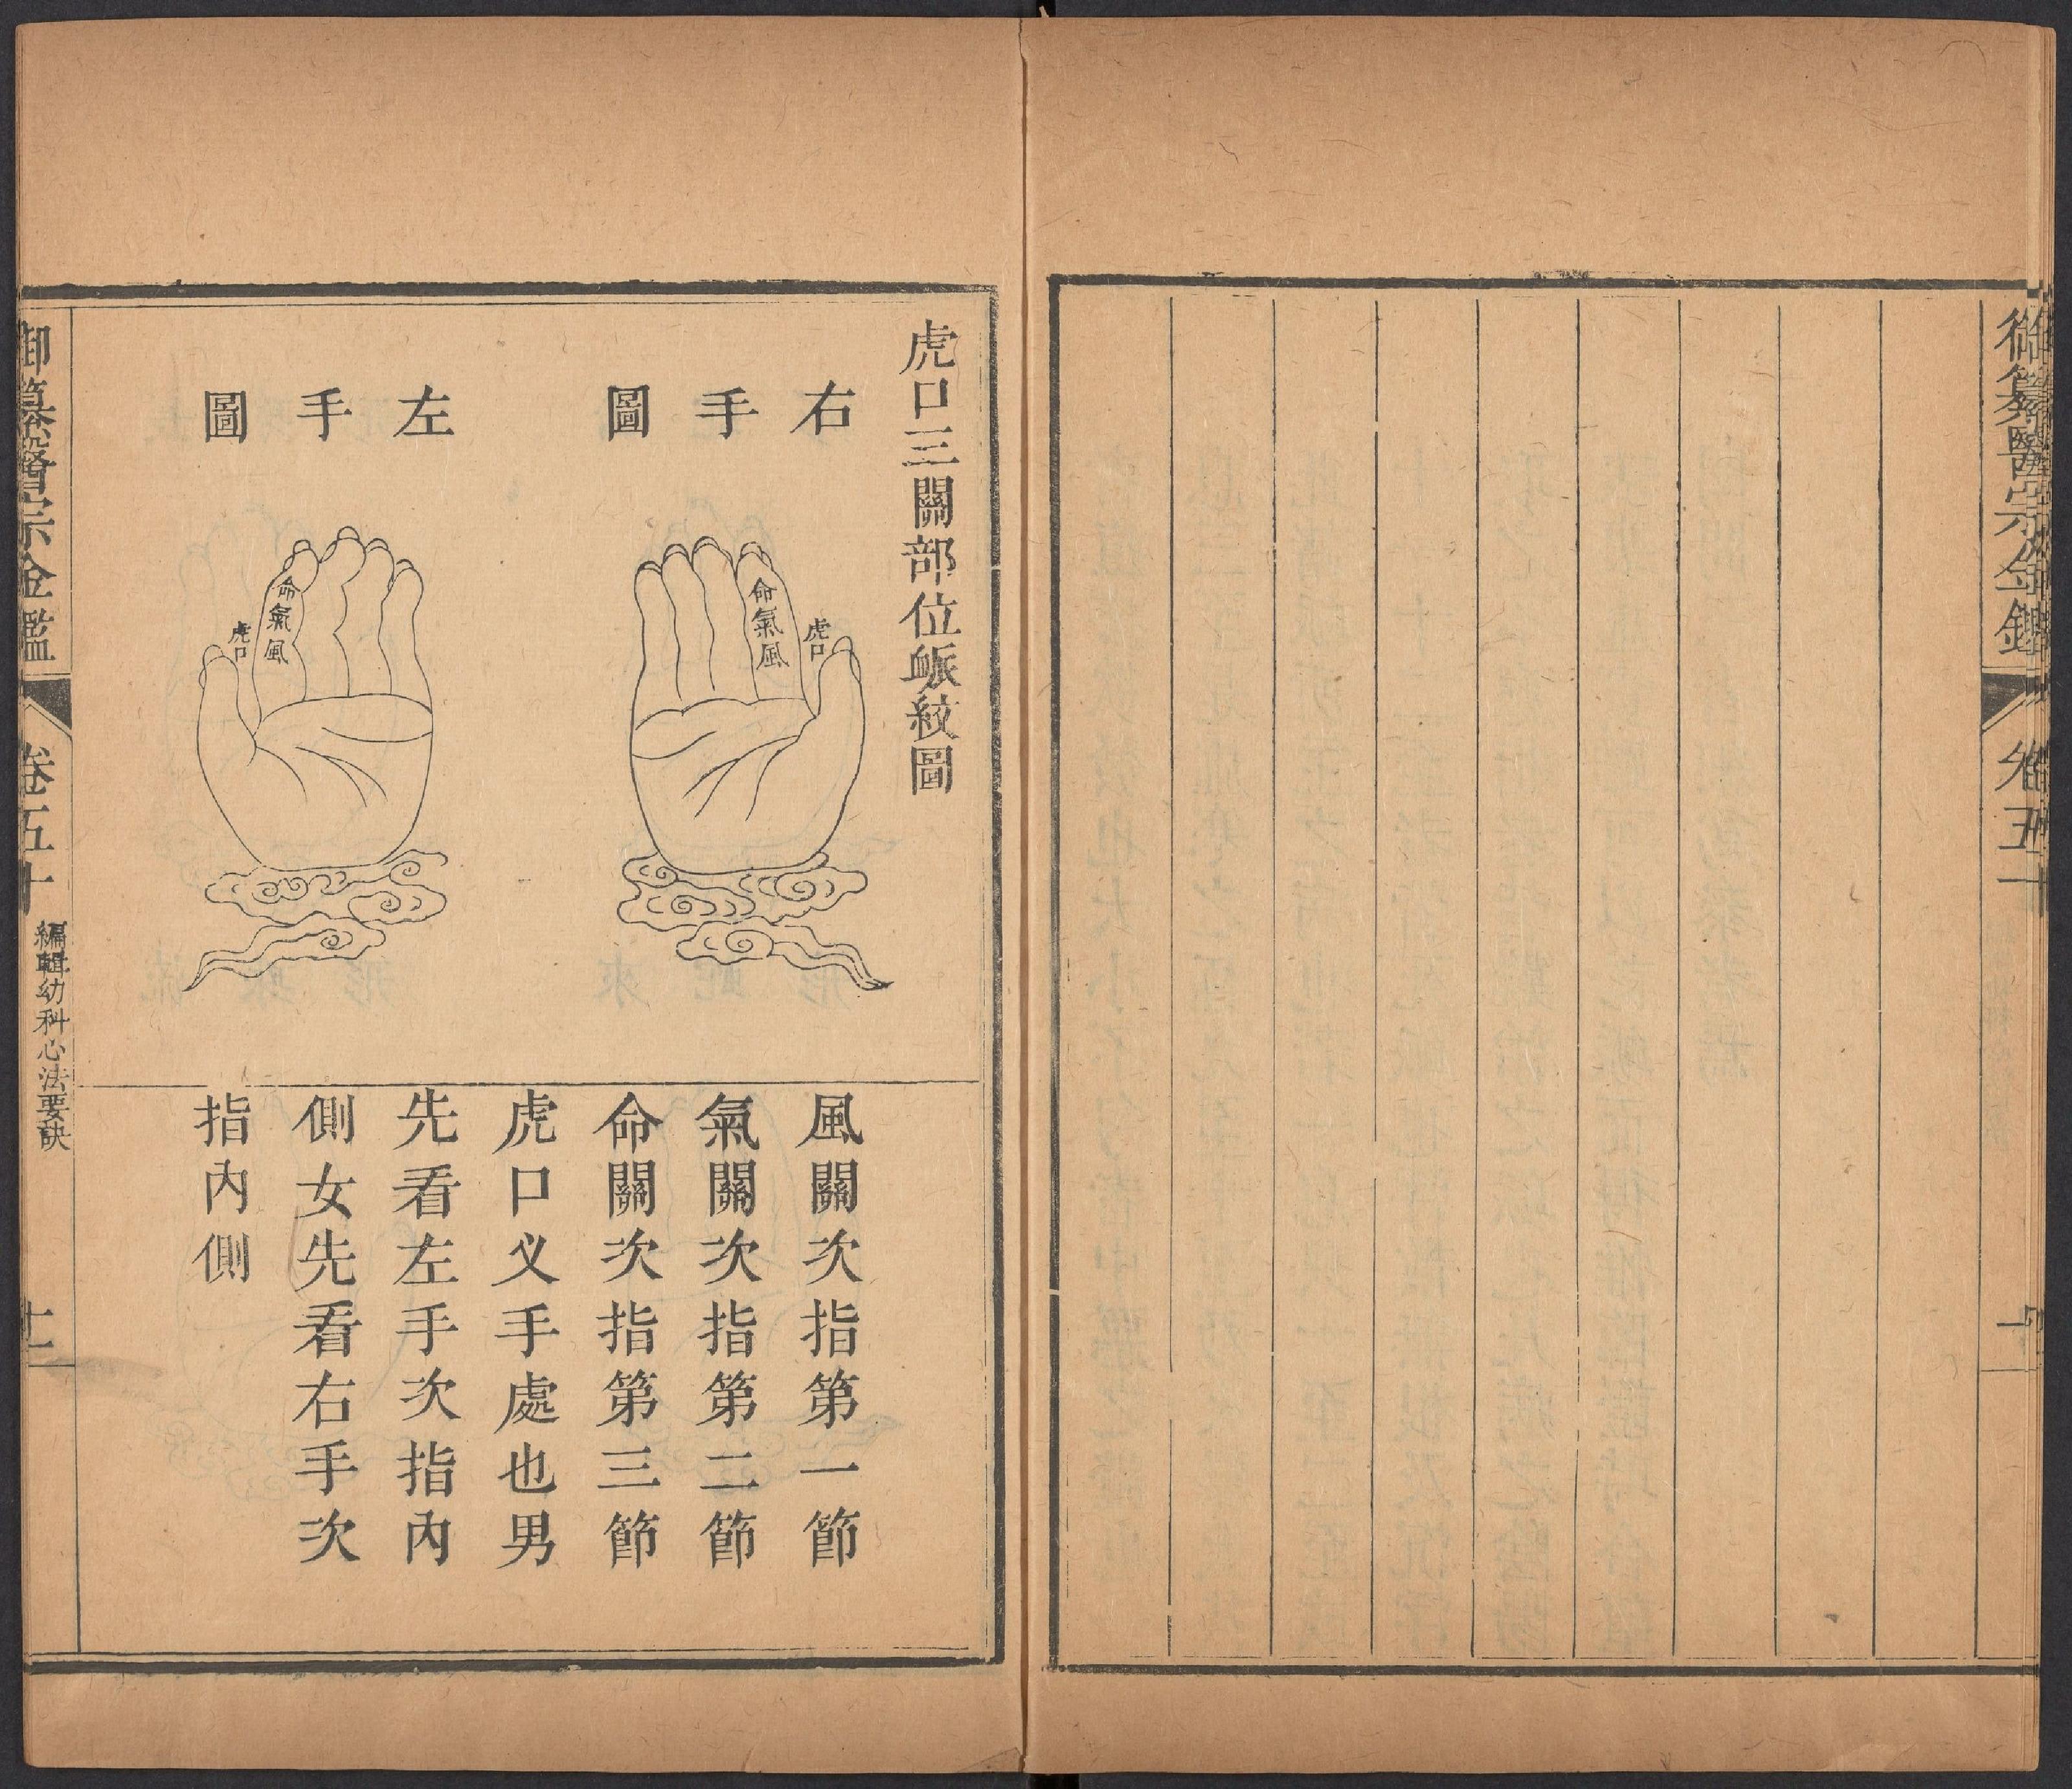 御纂醫宗金鑑
卷五十
虎口三關部位脈紋圖
右手圖
命氣風
虎口
左手圖
命氣風
虎口
風關次指第一節
氣關次指第二節
命關次指第三節
虎口义手處也男
先看左手次指內
側女先看右手次
指內側
御纂醫宗金鑑
卷五十
編輯幼科心法要訣
十一